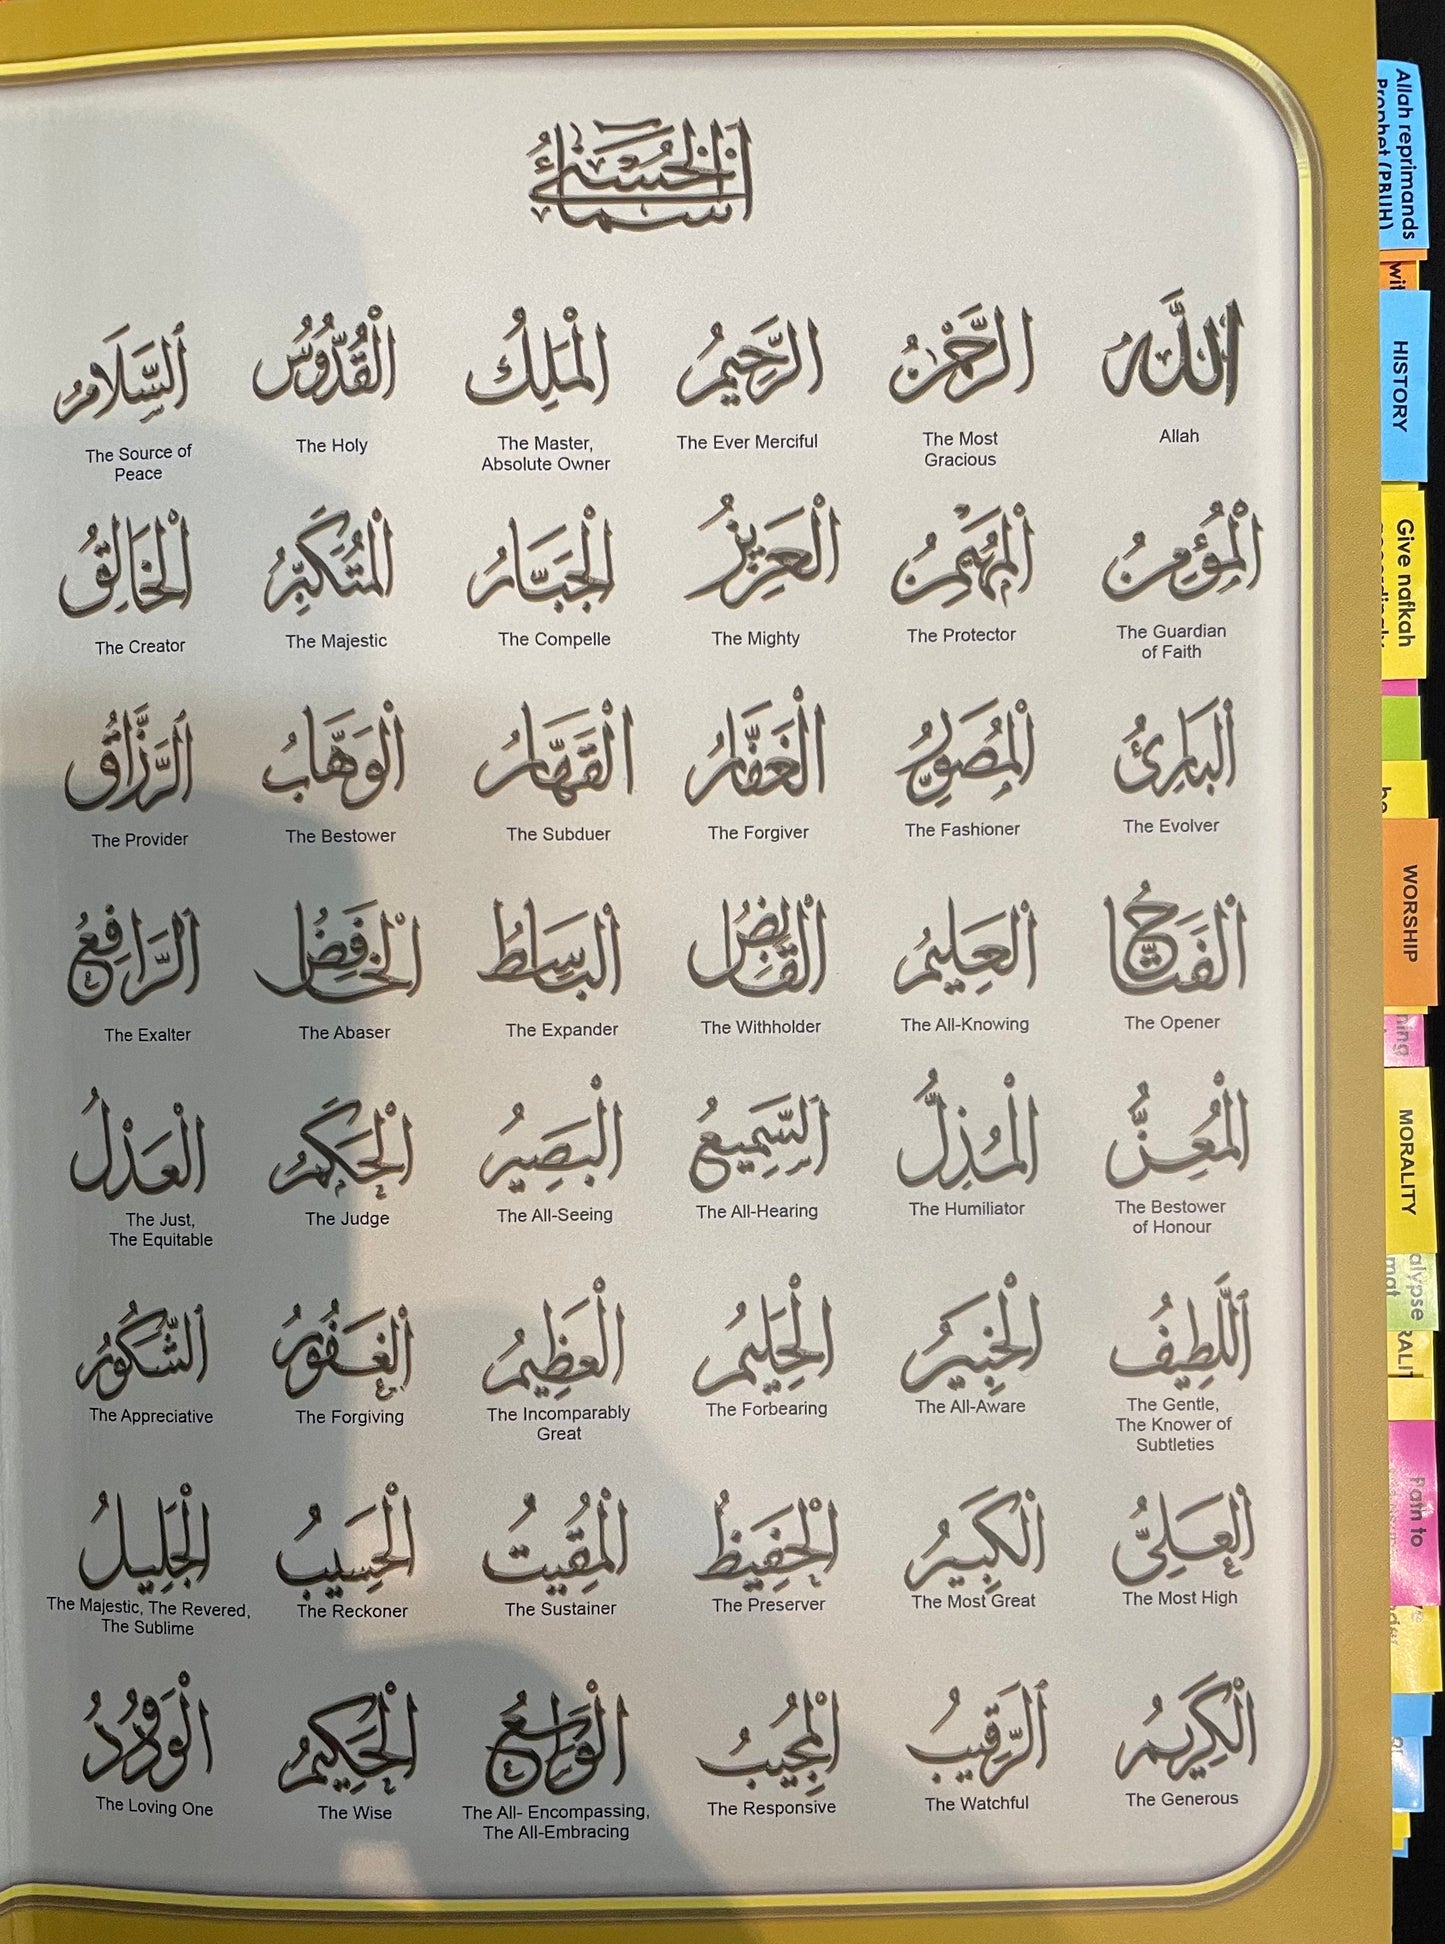 أسماء الحسنى
اللَّهُ
Allah
الرَّحْمٰنُ
The Most
Gracious
الرَّحِيمُ
The Ever Merciful
الْمَلِكُ
The Master,
Absolute Owner
الْقُدُّوسُ
The Holy
السَّلَامُ
The Source of
Peace
الْمُؤْمِنُ
The Guardian
of Faith
الْمُهَيْمِنُ
The Protector
الْعَزِيزُ
The Mighty
الْجَبَّارُ
The Compelle
الْمُتَكَبِّرُ
The Majestic
الْخَالِقُ
The Creator
الْبَارِئُ
The Evolver
الْمُصَوِّرُ
The Fashioner
الْغَفَّارُ
The Forgiver
الْقَهَّارُ
The Subduer
الْوَهَّابُ
The Bestower
الرَّزَّاقُ
The Provider
الْفَتَّاحُ
The Opener
الْعَلِيمُ
The All-Knowing
الْقَابِضُ
The Withholder
الْبَاسِطُ
The Expander
الْخَافِضُ
The Abaser
الرَّافِعُ
The Exalter
الْمُعِزُّ
The Bestower
of Honour
الْمُذِلُّ
The Humiliator
السَّمِيعُ
The All-Hearing
الْبَصِيرُ
The All-Seeing
الْحَكَمُ
The Judge
الْعَدْلُ
The Just,
The Equitable
اللَّطِيفُ
The Gentle,
The Knower of
Subtleties
الْخَبِيرُ
The All-Aware
الْحَلِيمُ
The Forbearing
الْعَظِيمُ
The Incomparably
Great
الْغَفُورُ
The Forgiving
الشَّكُورُ
The Appreciative
الْعَلِيُّ
The Most High
الْكَبِيرُ
The Most Great
الْحَفِيظُ
The Preserver
الْمُقِيتُ
The Sustainer
الْحَسِيبُ
The Reckoner
الْجَلِيلُ
The Majestic, The Revered,
The Sublime
الْكَرِيمُ
The Generous
الرَّقِيبُ
The Watchful
الْمُجِيبُ
The Responsive
الْوَاسِعُ
The All- Encompassing,
The All-Embracing
الْحَكِيمُ
The Wise
الْوَدُودُ
The Loving One
Allah reprimands
Prophet (PBUH)
HISTORY
Give nafkah
WORSHIP
MORALITY
Path to